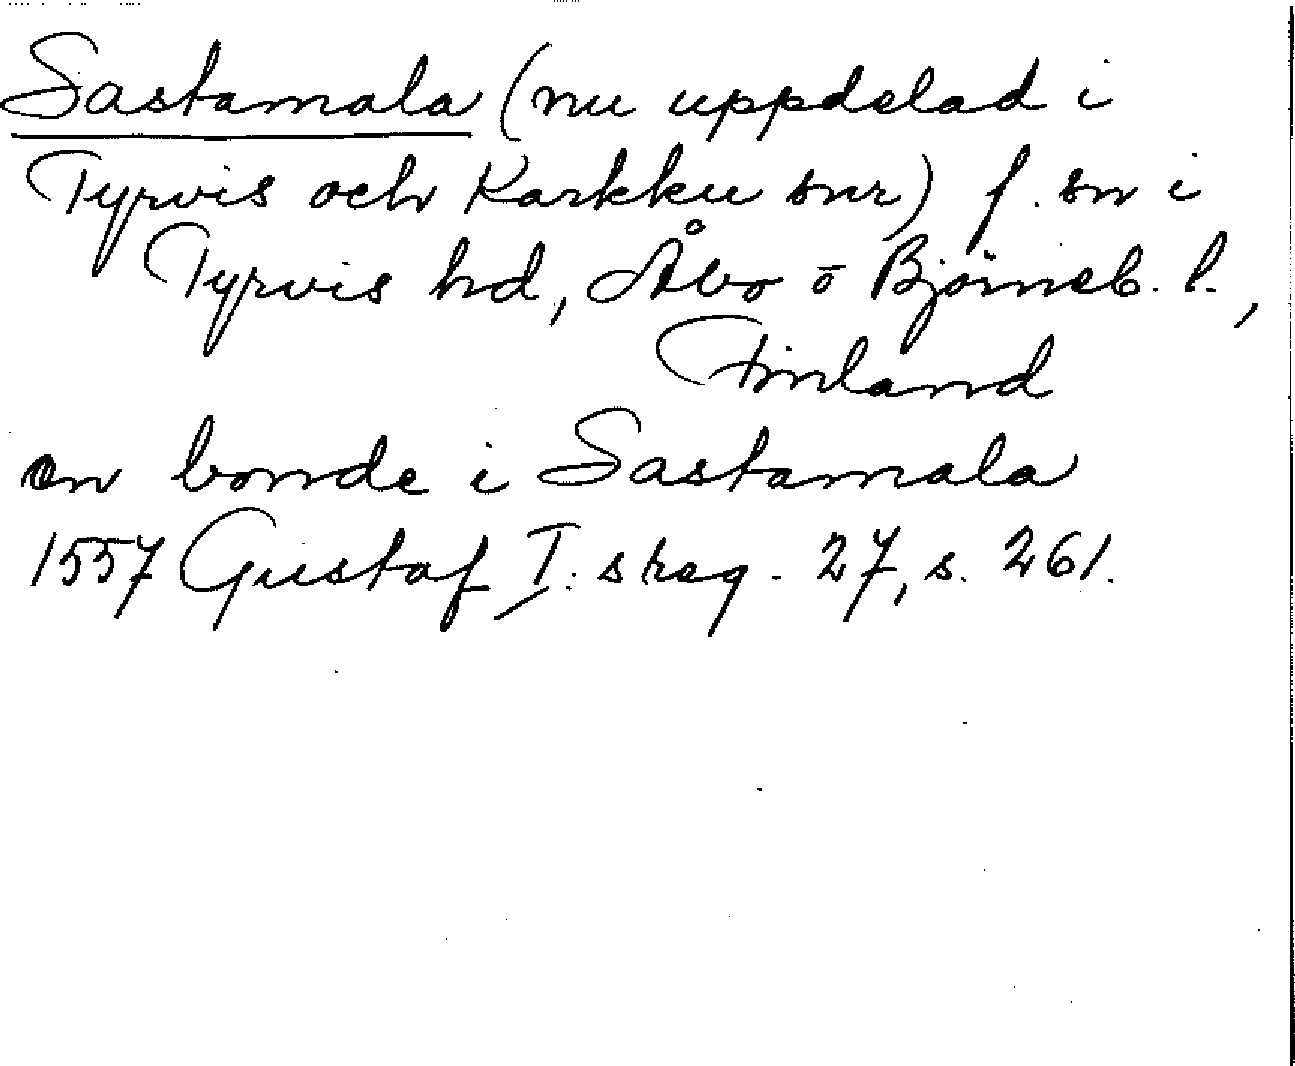 Sastamala (nu uppdelad i
Tyrvis och Karkku snr) f. sn i
Tyrvis hd, Åbo o Björneb. l.,
Finland
en bonde i Sastamala
1557 Gustaf I:s reg. 27, s. 261.